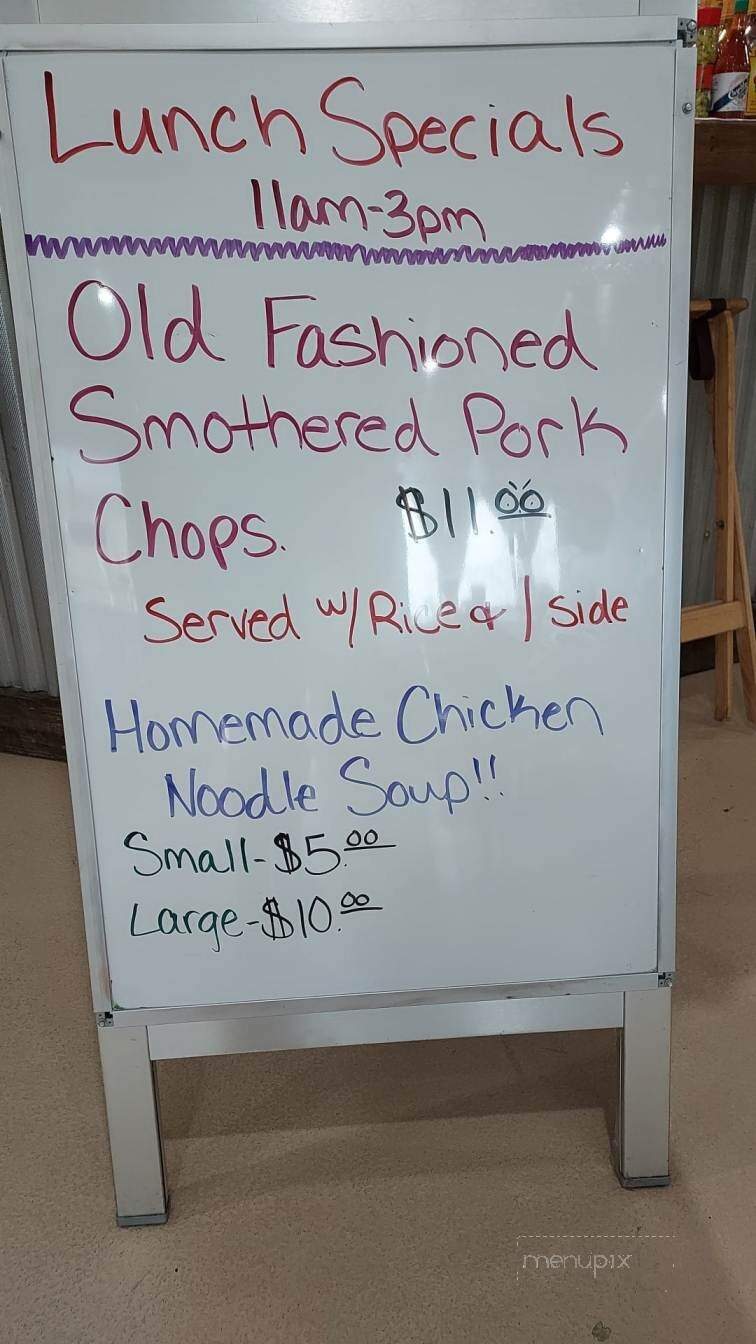 Lunch Specials
11am-3pm
Old Fashioned
Smothered Pork
Chops. $11.00
Served w/ Rice & 1 side
Homemade Chicken
Noodle Soup!!
Small-$5.00
Large-$10.00
menupix